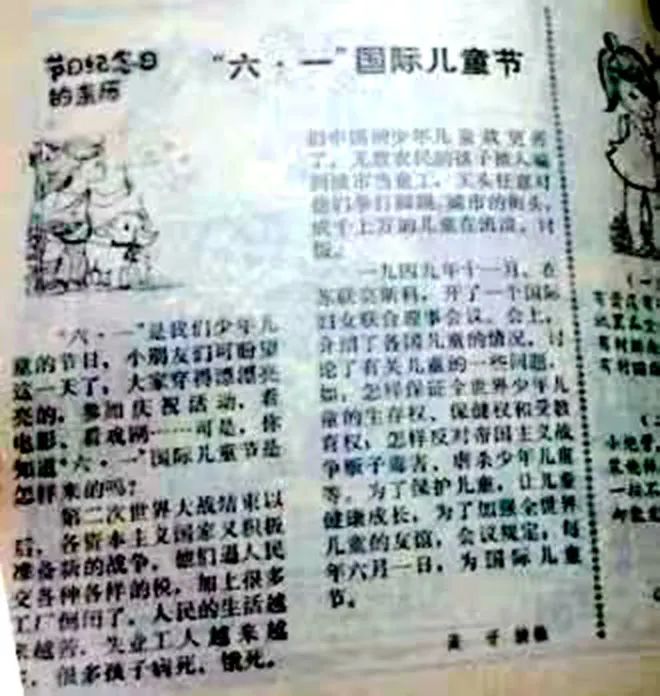 节日纪念日
的来历
“六·一”国际儿童节
“六·一”是我们少年儿
童的节日，小朋友们可盼望
这一天了，大家穿得漂漂亮
亮的，参加庆祝活动，看
电影、看戏剧……可是，你
知道“六·一”国际儿童节是
怎样来的吗？
第二次世界大战结束以
后，各资本主义国家又积极
准备新的战争，他们逼人民
交各种各样的税，加上很多
工厂倒闭了，人民的生活越
来越苦，失业工人越来越
很多孩子病死、饿死。
们中国的少年儿童就更苦
了，无数农民的孩子被人骗
到城市当童工，工头任意对
他们拳打脚踢，城市的街头，
成千上万的儿童在流浪、讨
饭。
一九四九年十一月，在
苏联莫斯科，开了一个国际
妇女联合理事会议。会上，
介绍了各国儿童的情况，讨
论了有关儿童的一些问题，
如，怎样保证全世界少年儿
童的生存权、保健权和受教
育权；怎样反对帝国主义战
争贩子毒害、虐杀少年儿童
等。为了保护儿童，让儿童
健康成长，为了加强全世界
儿童的友谊，会议规定：每
年六月一日，为国际儿童
节。